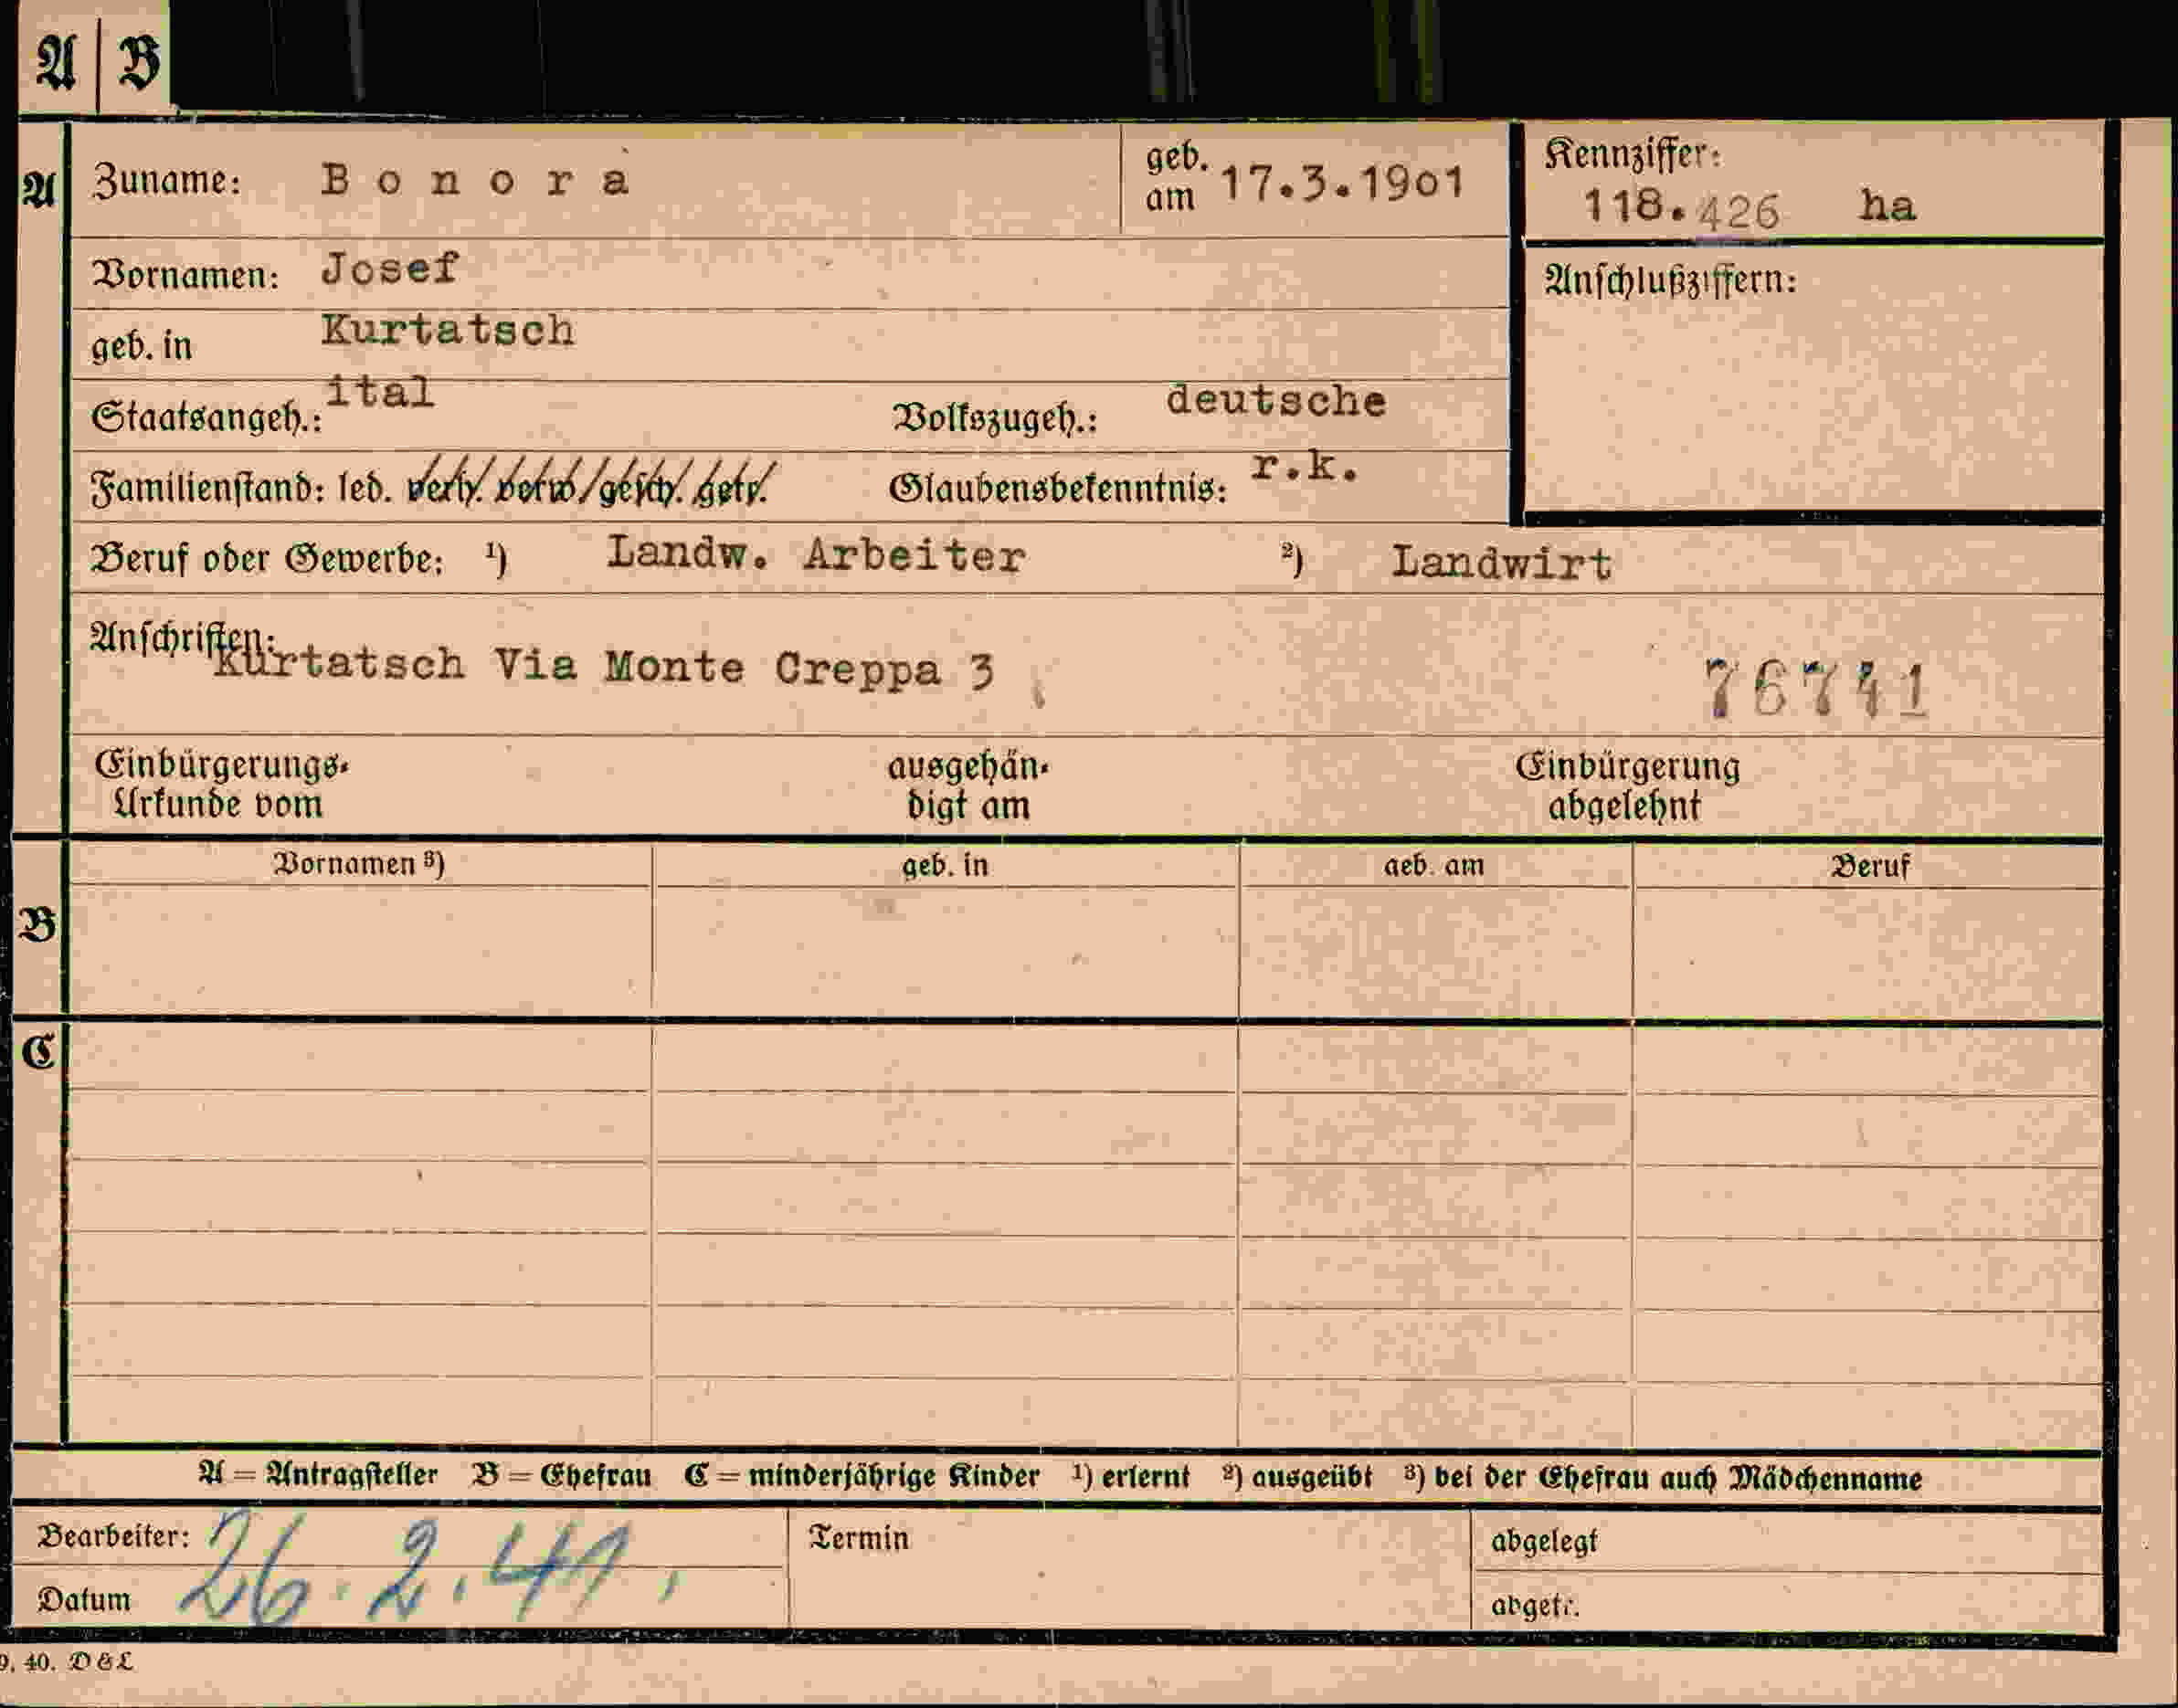 A | B
A Zuname: Bonora geb. am 17.3.1901 Kennziffer: 118.426 ha
Vornamen: Josef Anschlußziffern:
geb. in Kurtatsch
Staatsangeh.: ital Volkszugeh.: deutsche
Familienstand: led. verh. verw. gesch. getr. Glaubensbekenntnis: r.k.
Beruf oder Gewerbe: ¹) Landw. Arbeiter ²) Landwirt
Anschriften: Kurtatsch Via Monte Creppa 3 76741
Einbürgerungs- ausgehän- Einbürgerung
Urkunde vom digt am abgelehnt
Vornamen ³) geb. in geb. am Beruf
B
C
A = Antragsteller B = Ehefrau C = minderjährige Kinder ¹) erlernt ²) ausgeübt ³) bei der Ehefrau auch Mädchenname
Bearbeiter: Termin abgelegt
Datum 26.2.41. abgetr.
9. 40. D & L